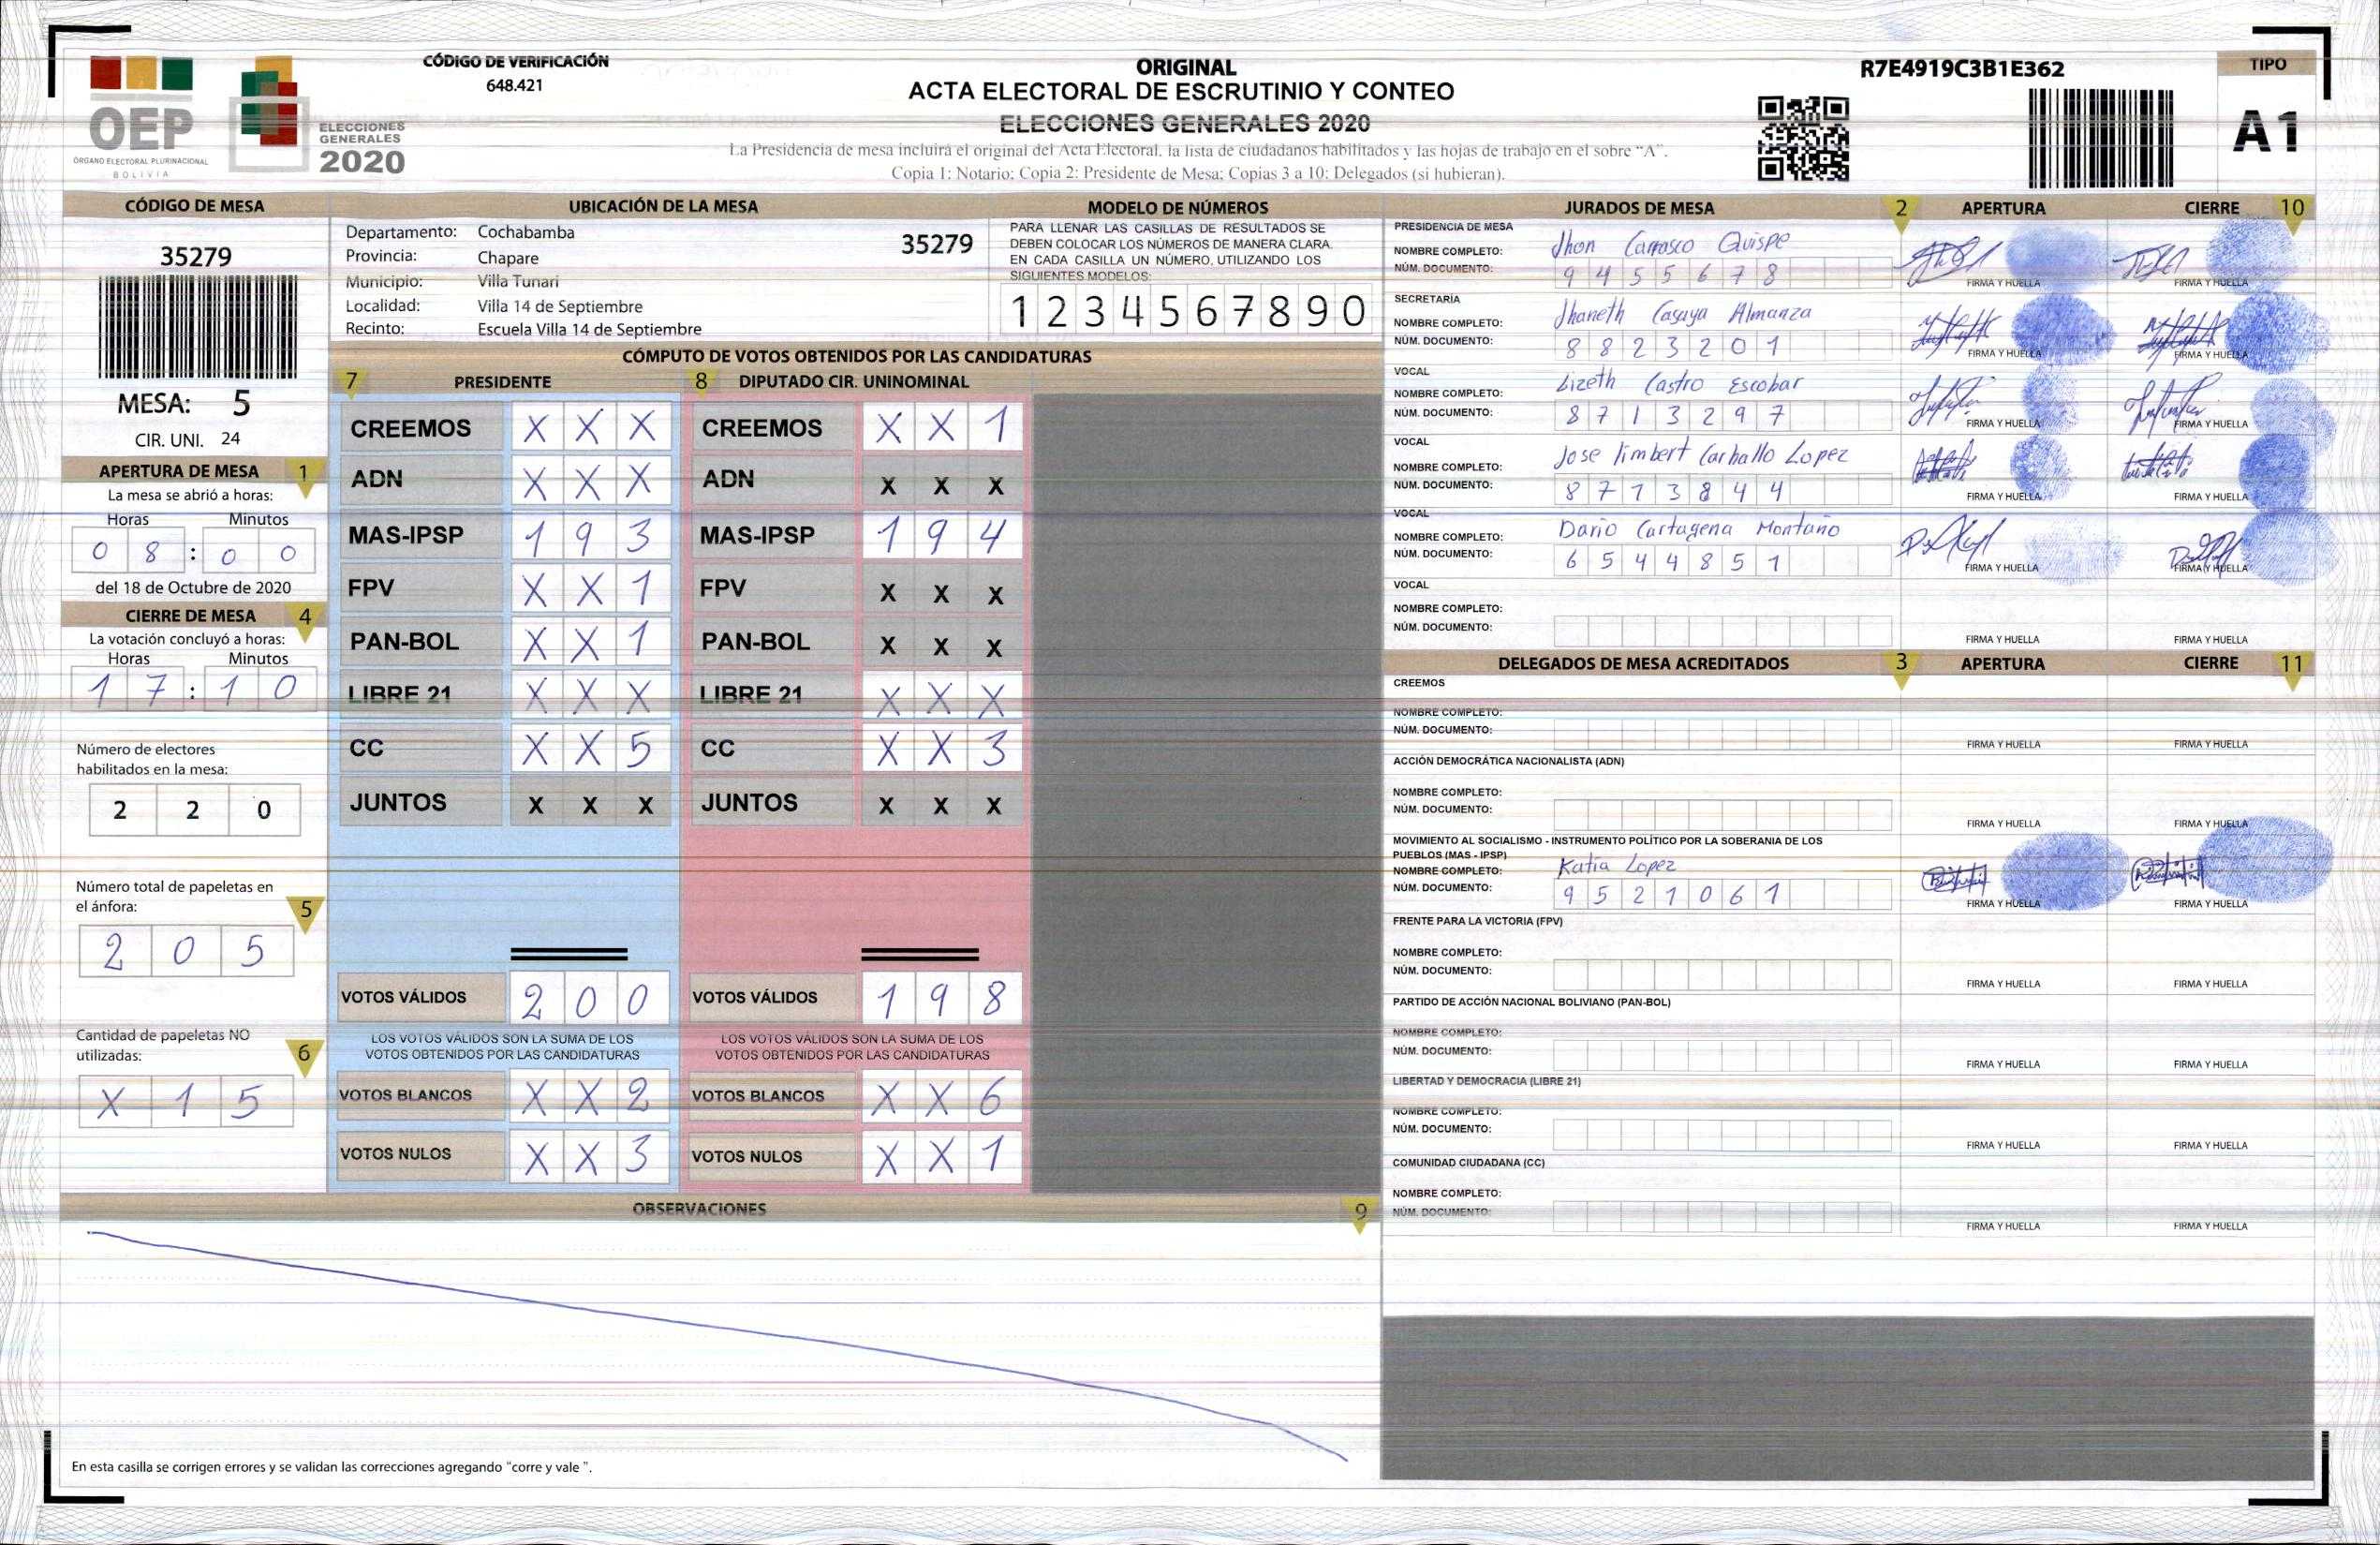 CÓDIGO DE VERIFICACIÓN
648.421
ORIGINAL
ACTA ELECTORAL DE ESCRUTINIO Y CONTEO
ELECCIONES GENERALES 2020
La Presidencia de mesa incluirá el original del Acta Electoral, la lista de ciudadanos habilitados y las hojas de trabajo en el sobre “A”.
Copia 1: Notario; Copia 2: Presidente de Mesa; Copias 3 a 10: Delegados (si hubieran).
R7E4919C3B1E362
TIPO
A1
OEP
ÓRGANO ELECTORAL PLURINACIONAL
BOLIVIA
ELECCIONES
GENERALES
2020
CÓDIGO DE MESA
35279
MESA: 5
CIR. UNI. 24
APERTURA DE MESA 1
La mesa se abrió a horas:
Horas Minutos
0 8 : 0 0
del 18 de Octubre de 2020
CIERRE DE MESA 4
La votación concluyó a horas:
Horas Minutos
1 7 : 1 0
Número de electores
habilitados en la mesa:
2 2 0
Número total de papeletas en
el ánfora: 5
2 0 5
Cantidad de papeletas NO
utilizadas: 6
X 1 5
UBICACIÓN DE LA MESA
Departamento: Cochabamba
35279
Provincia: Chapare
Municipio: Villa Tunari
Localidad: Villa 14 de Septiembre
Recinto: Escuela Villa 14 de Septiembre
MODELO DE NÚMEROS
PARA LLENAR LAS CASILLAS DE RESULTADOS SE
DEBEN COLOCAR LOS NÚMEROS DE MANERA CLARA.
EN CADA CASILLA UN NÚMERO, UTILIZANDO LOS
SIGUIENTES MODELOS:
1 2 3 4 5 6 7 8 9 0
CÓMPUTO DE VOTOS OBTENIDOS POR LAS CANDIDATURAS
7 PRESIDENTE 8 DIPUTADO CIR. UNINOMINAL
CREEMOS X X X CREEMOS X X 1
ADN X X X ADN X X X
MAS-IPSP 1 9 3 MAS-IPSP 1 9 4
FPV X X 1 FPV X X X
PAN-BOL X X 1 PAN-BOL X X X
LIBRE 21 X X X LIBRE 21 X X X
CC X X 5 CC X X 3
JUNTOS X X X JUNTOS X X X
VOTOS VÁLIDOS 2 0 0 VOTOS VÁLIDOS 1 9 8
LOS VOTOS VÁLIDOS SON LA SUMA DE LOS LOS VOTOS VÁLIDOS SON LA SUMA DE LOS
VOTOS OBTENIDOS POR LAS CANDIDATURAS VOTOS OBTENIDOS POR LAS CANDIDATURAS
VOTOS BLANCOS X X 2 VOTOS BLANCOS X X 6
VOTOS NULOS X X 3 VOTOS NULOS X X 1
OBSERVACIONES 9
En esta casilla se corrigen errores y se validan las correcciones agregando “corre y vale ”.
JURADOS DE MESA 2 APERTURA CIERRE 10
PRESIDENCIA DE MESA
NOMBRE COMPLETO: Jhon Carrasco Quispe
NÚM. DOCUMENTO: 9 4 5 5 6 7 8
FIRMA Y HUELLA FIRMA Y HUELLA
SECRETARÍA
NOMBRE COMPLETO: Jhaneth Casaya Almanza
NÚM. DOCUMENTO: 8 8 2 3 2 0 1
FIRMA Y HUELLA FIRMA Y HUELLA
VOCAL
NOMBRE COMPLETO: Lizeth Castro Escobar
NÚM. DOCUMENTO: 8 7 1 3 2 9 7
FIRMA Y HUELLA FIRMA Y HUELLA
VOCAL
NOMBRE COMPLETO: Jose limbert Carballo Lopez
NÚM. DOCUMENTO: 8 7 1 3 8 4 4
FIRMA Y HUELLA FIRMA Y HUELLA
VOCAL
NOMBRE COMPLETO: Dario Cartagena Montaño
NÚM. DOCUMENTO: 6 5 4 4 8 5 1
FIRMA Y HUELLA FIRMA Y HUELLA
VOCAL
NOMBRE COMPLETO:
NÚM. DOCUMENTO:
FIRMA Y HUELLA FIRMA Y HUELLA
DELEGADOS DE MESA ACREDITADOS 3 APERTURA CIERRE 11
CREEMOS
NOMBRE COMPLETO:
NÚM. DOCUMENTO:
FIRMA Y HUELLA FIRMA Y HUELLA
ACCIÓN DEMOCRÁTICA NACIONALISTA (ADN)
NOMBRE COMPLETO:
NÚM. DOCUMENTO:
FIRMA Y HUELLA FIRMA Y HUELLA
MOVIMIENTO AL SOCIALISMO - INSTRUMENTO POLÍTICO POR LA SOBERANIA DE LOS
PUEBLOS (MAS - IPSP)
NOMBRE COMPLETO: Katia Lopez
NÚM. DOCUMENTO: 9 5 2 1 0 6 1
FIRMA Y HUELLA FIRMA Y HUELLA
FRENTE PARA LA VICTORIA (FPV)
NOMBRE COMPLETO:
NÚM. DOCUMENTO:
FIRMA Y HUELLA FIRMA Y HUELLA
PARTIDO DE ACCIÓN NACIONAL BOLIVIANO (PAN-BOL)
NOMBRE COMPLETO:
NÚM. DOCUMENTO:
FIRMA Y HUELLA FIRMA Y HUELLA
LIBERTAD Y DEMOCRACIA (LIBRE 21)
NOMBRE COMPLETO:
NÚM. DOCUMENTO:
FIRMA Y HUELLA FIRMA Y HUELLA
COMUNIDAD CIUDADANA (CC)
NOMBRE COMPLETO:
NÚM. DOCUMENTO:
FIRMA Y HUELLA FIRMA Y HUELLA